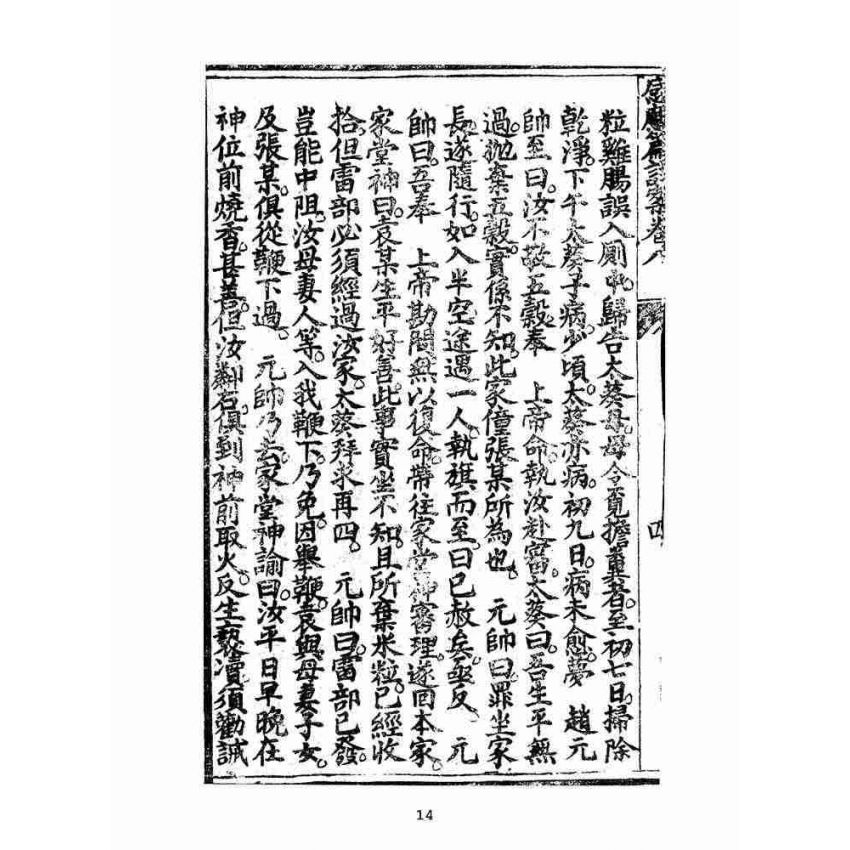 感應篇註案卷八
四
粒雞腸誤入厠中歸告太葵母母令覓擔糞者至初七日掃除
乾淨下午太葵子病少頃太葵亦病初九日病未愈夢　趙元
帥至曰汝不敬五穀奉　上帝命執汝赴審太葵曰吾生平無
過拋棄五穀實係不知此家僮張某所為也　元帥曰罪坐家
長遂隨行如入半空途遇一人執旗而至曰已赦矣亟反　元
帥曰吾奉　上帝勘問無以復命帶往家堂神審理遂回本家
家堂神曰袁某生平好善此事實坐不知且所棄米粒已經收
拾但雷部必須經過汝家太葵拜求再四　元帥曰雷部已發
豈能中阻汝母妻人等入我鞭下乃免因舉鞭袁與母妻子女
及張某俱從鞭下過　元帥乃去家堂神諭曰汝平日早晚在
神位前燒香甚善但汝鄰右俱到神前取火反生褻瀆須勸誡
14